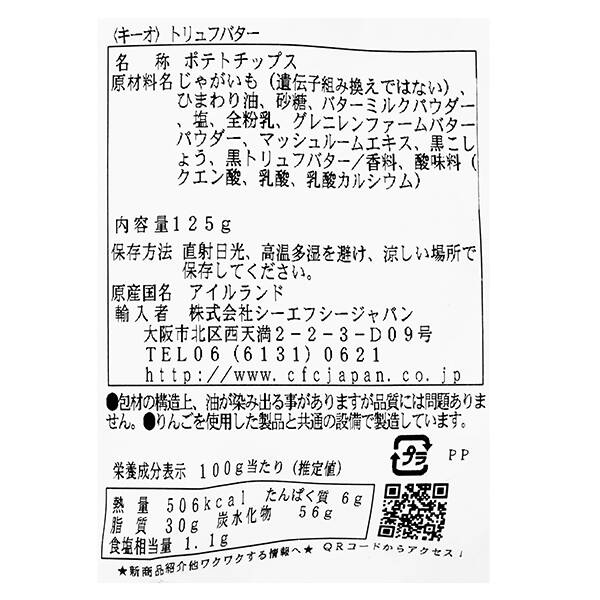 〈キーオ〉トリュフバター
名　称　ポテトチップス
原材料名 じゃがいも（遺伝子組み換えではない）、
ひまわり油、砂糖、バターミルクパウダー
、塩、全粉乳、グレニレンファームバター
パウダー、マッシュルームエキス、黒こし
ょう、黒トリュフバター／香料、酸味料（
クエン酸、乳酸、乳酸カルシウム）
内容量 125g
保存方法 直射日光、高温多湿を避け、涼しい場所で
保存してください。
原産国名 アイルランド
輸入者 株式会社シーエフシージャパン
大阪市北区西天満2－2－3－D09号
TEL06（6131）0621
http://www.cfcjapan.co.jp
●包材の構造上、油が染み出る事がありますが品質には問題ありま
せん。●りんごを使用した製品と共通の設備で製造しています。
プラ PP
栄養成分表示 100g当たり（推定値）
熱量 506kcal たんぱく質 6g
脂質 30g 炭水化物 56g
食塩相当量 1.1g
★新商品紹介他ワクワクする情報へ★ QRコードからアクセス！